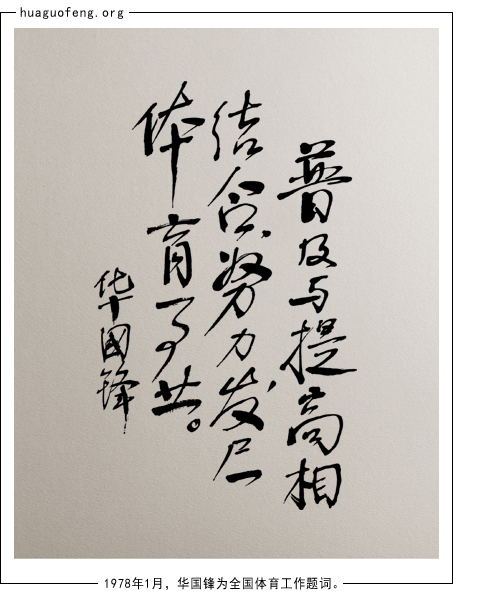 huaguofeng.org
普及与提高相
结合,努力发展
体育事业。
华国锋
1978年1月，华国锋为全国体育工作题词。